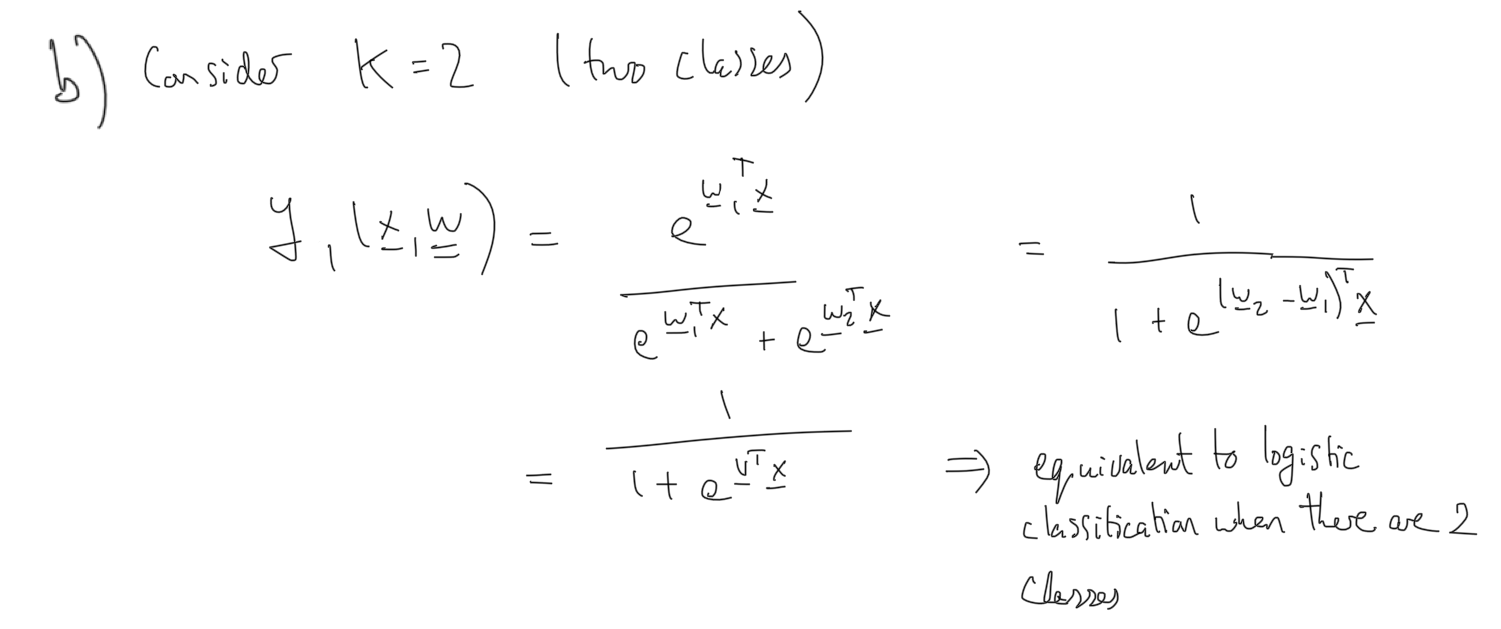 b) Consider K = 2 (two classes)
y₁(x, w) = e^{w₁ᵀx} / (e^{w₁ᵀx} + e^{w₂ᵀx}) = 1 / (1 + e^{(w₂ - w₁)ᵀx})
= 1 / (1 + e^{vᵀx}) ⇒ equivalent to logistic
classification when there are 2
classes